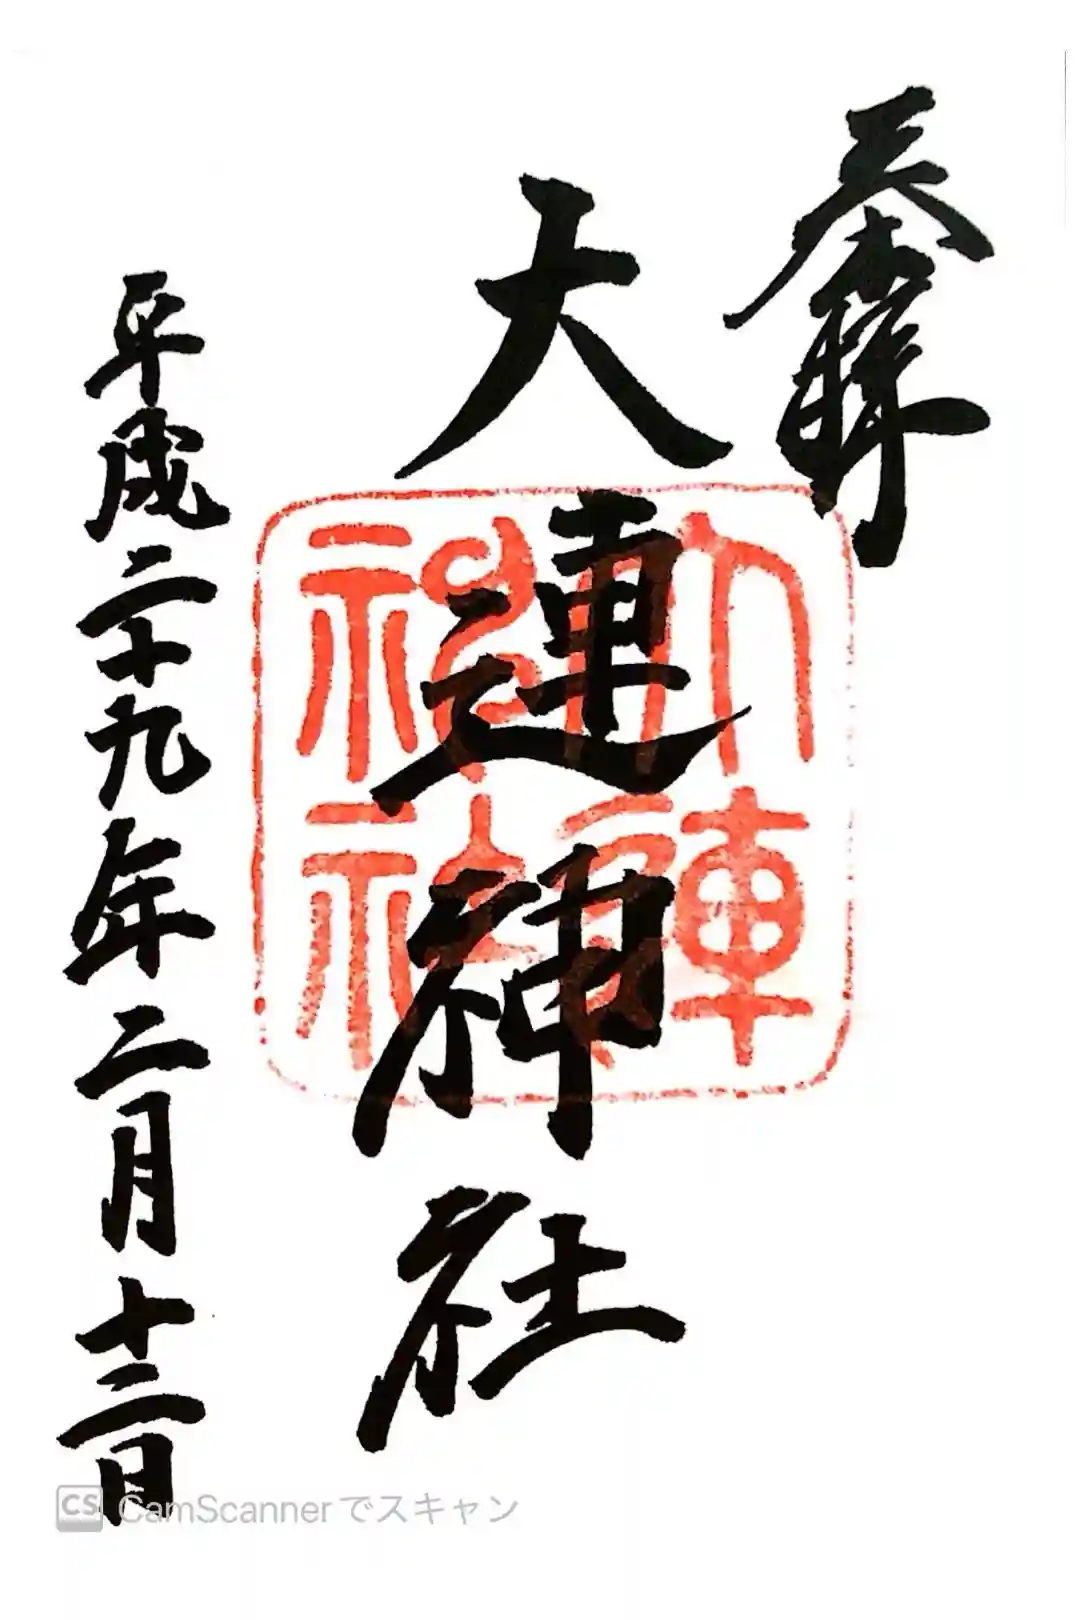 奉拝
大連神社
大連神社
平成二十九年二月十二日
CS CamScannerでスキャン